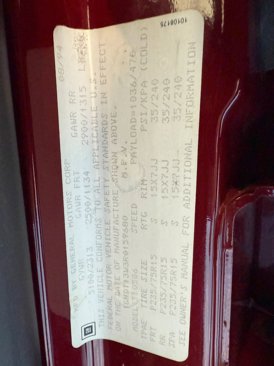 10108175
MFD BY GENERAL MOTORS CORP 08/94
GVWR GAWR FRT GAWR RR
5100/2313 2500/1134 2900/1315
THIS VEHICLE CONFORMS TO ALL APPLICABLE U.S.
FEDERAL MOTOR VEHICLE SAFETY STANDARDS IN EFFECT
ON THE DATE OF MANUFACTURE SHOWN ABOVE.
M.P.V.
MODEL: T10506 SPEED PAYLOAD=1036/470
TIRE SIZE RTG RIM PSI/KPA (COLD)
FRT P235/75R15 S 15X7JJ 35/240
RR P235/75R15 S 15X7JJ 35/240
SPA P235/75R15 S 15X7JJ 35/240
SEE OWNER'S MANUAL FOR ADDITIONAL INFORMATION
GM